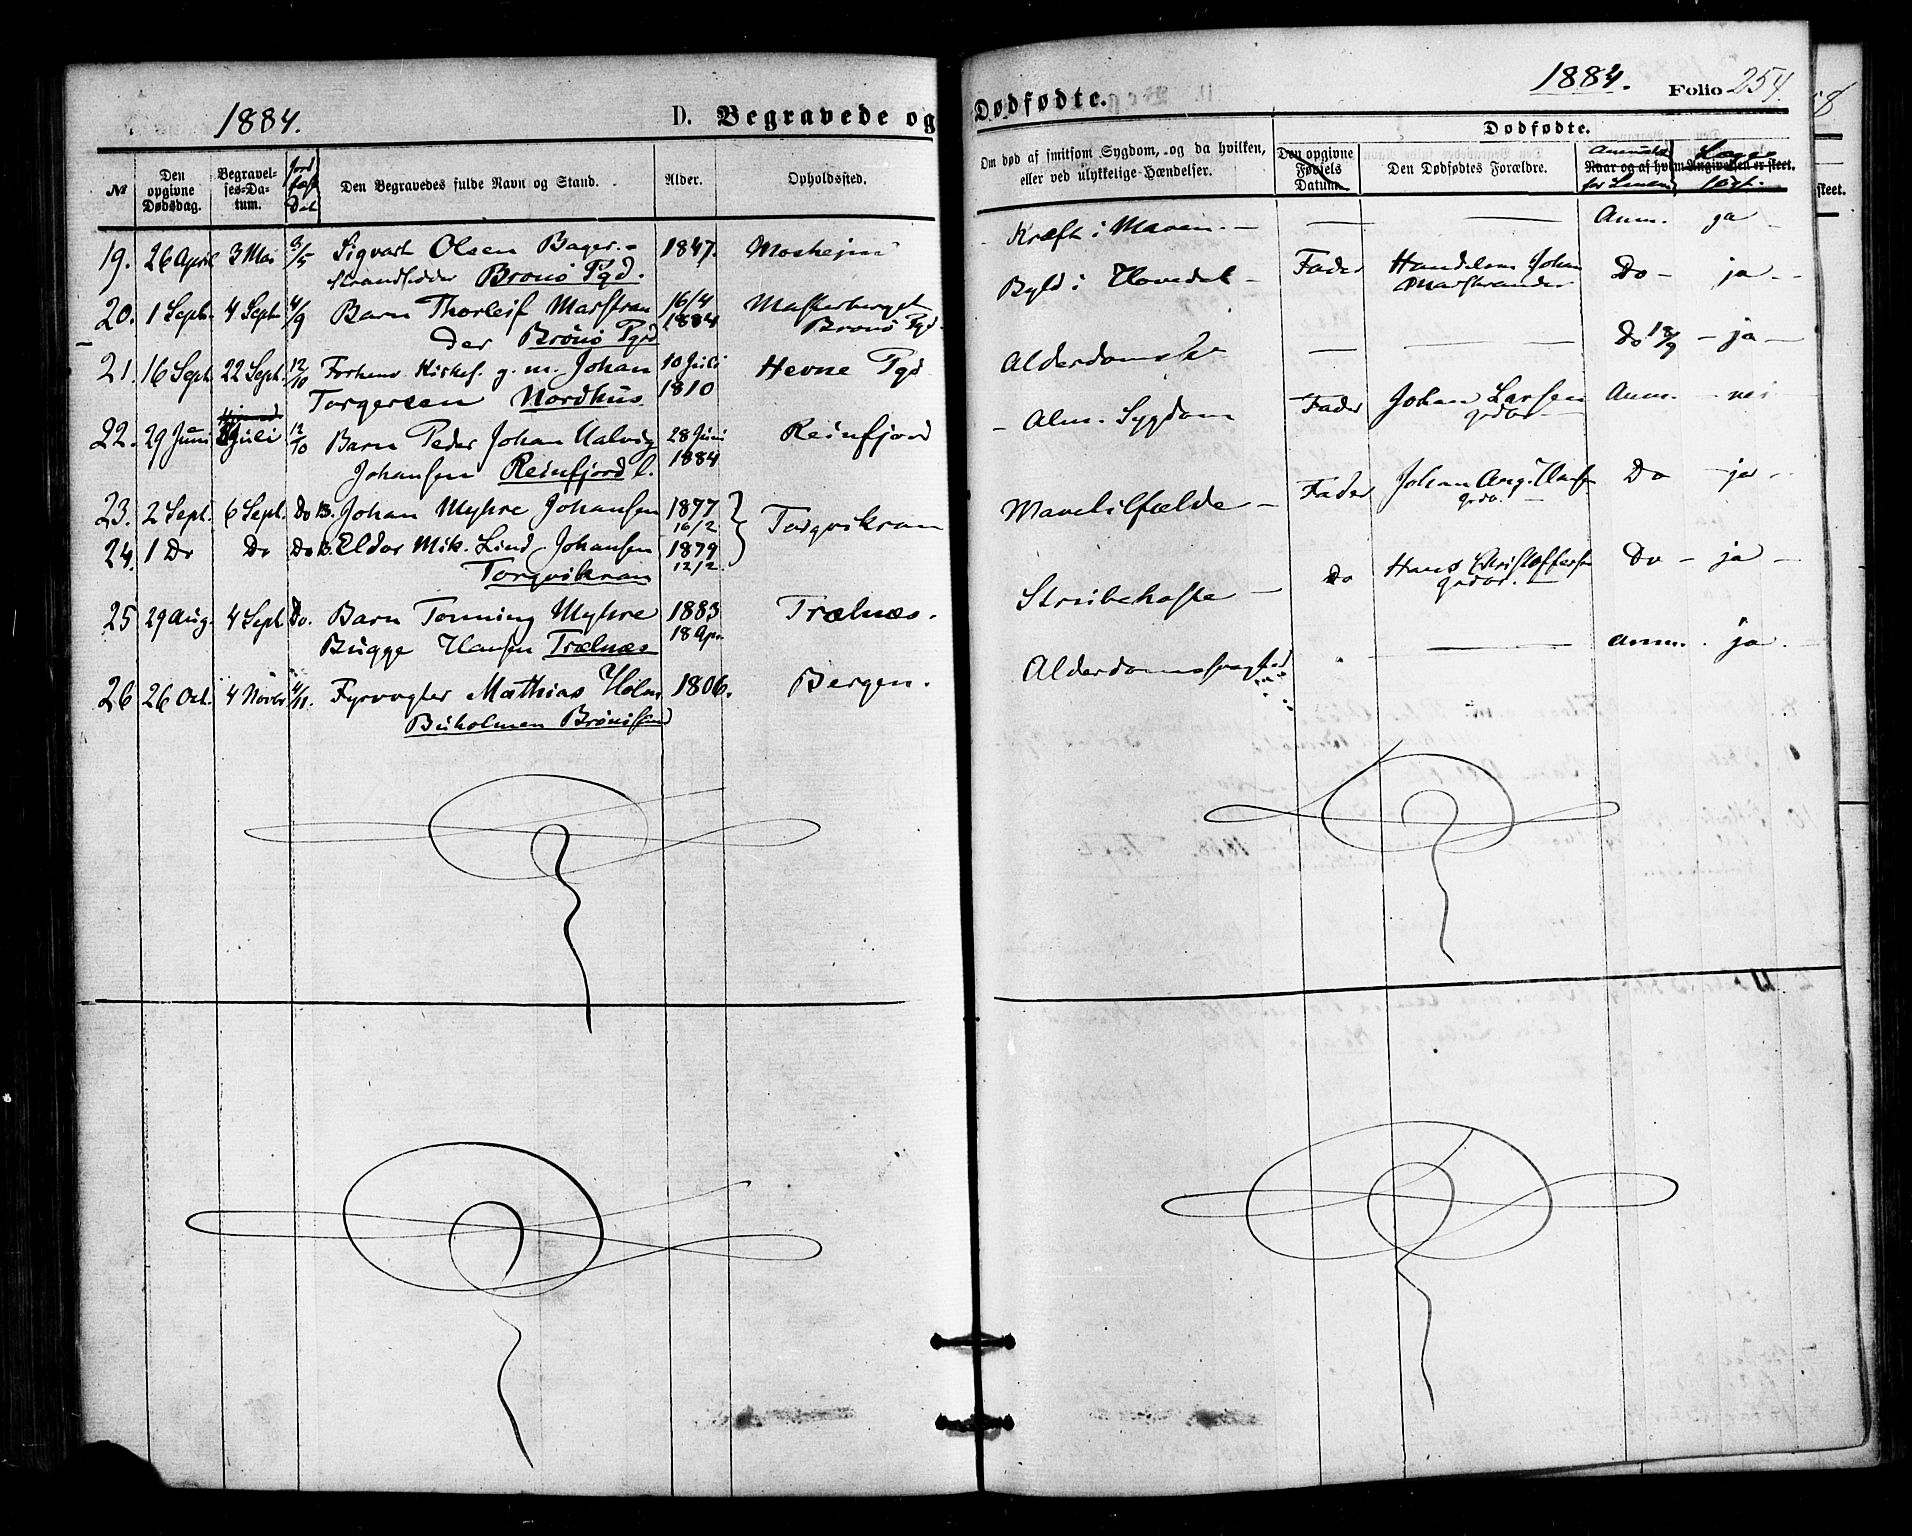 1884.
D. Begravede og
№
Den opgivne Dødsdag.
Begravelses-Datum.
Den Begravedes fulde Navn og Stand.
Alder.
Opholdssted.
19. 26 April 3 Mai 3/5 Sigvart Olsen Bager. 1847. Mosheim
strandsidder Brønø Pgd.
20. 1 Sept. 4 Sept 4/9 Barn Thorleif Marstran 16/4 1884
der Brønø Pgd Brønø Pgd.
21. 16 Sept. 22 Sept. 12/10 g. m. Johan 10 Juli 1810 Hevne Pgd
Torgersen Nordhus.
22. 29 Juni Juli 12/10 Barn Peder Johan Halvig 28 Juni 1884 Reinfjord
Johansen Reinfjord
23. 2 Sept. 6 Sept. Do B. Johan Myhre Johansen 1877 16/2 Torgvikran
24. 1 Do Do Do B. Eldor Mik. Lind Johansen 1879 12/2.
Torgvikran
25 29 Aug. 4 Sept Do. Barn Tonning Myhre 1883 18 Apr. Trælnæs.
Bugge Hansen Trælnæs
26 26 Oct. 4 Novbr 4/11. Fyrvogter Mathias Holm 1806. Bergen.
Buholmen Brønøsund
Dødfødte.
1884.
Folio 254
Om død af smitsom Sygdom, og da hvilken, eller ved ulykkelige Hændelser.
Dødfødte.
Den opgivne Fødsels Datum.
Den Dødfødtes Forældre.
Naar og af hvem Angivelsen er skeet.
skeet.
Kræft i Maven. — — — Anm. ja
Byld i Hovedet — Fader Handelsm Johan Do — ja —
Marstrander
Alderdoms — — Do 18/9 — ja —
Alm. Sygdom Fader Johan Larsen Anm. — nei
grdbr
Mavetilfælde — Fader Johan Aug. Olsen Do — ja
grdb. —
Strubehoste — Do Hans Christoffersen Do — ja —
grdbr. —
Alderdomssvaghed — — Anm. — ja